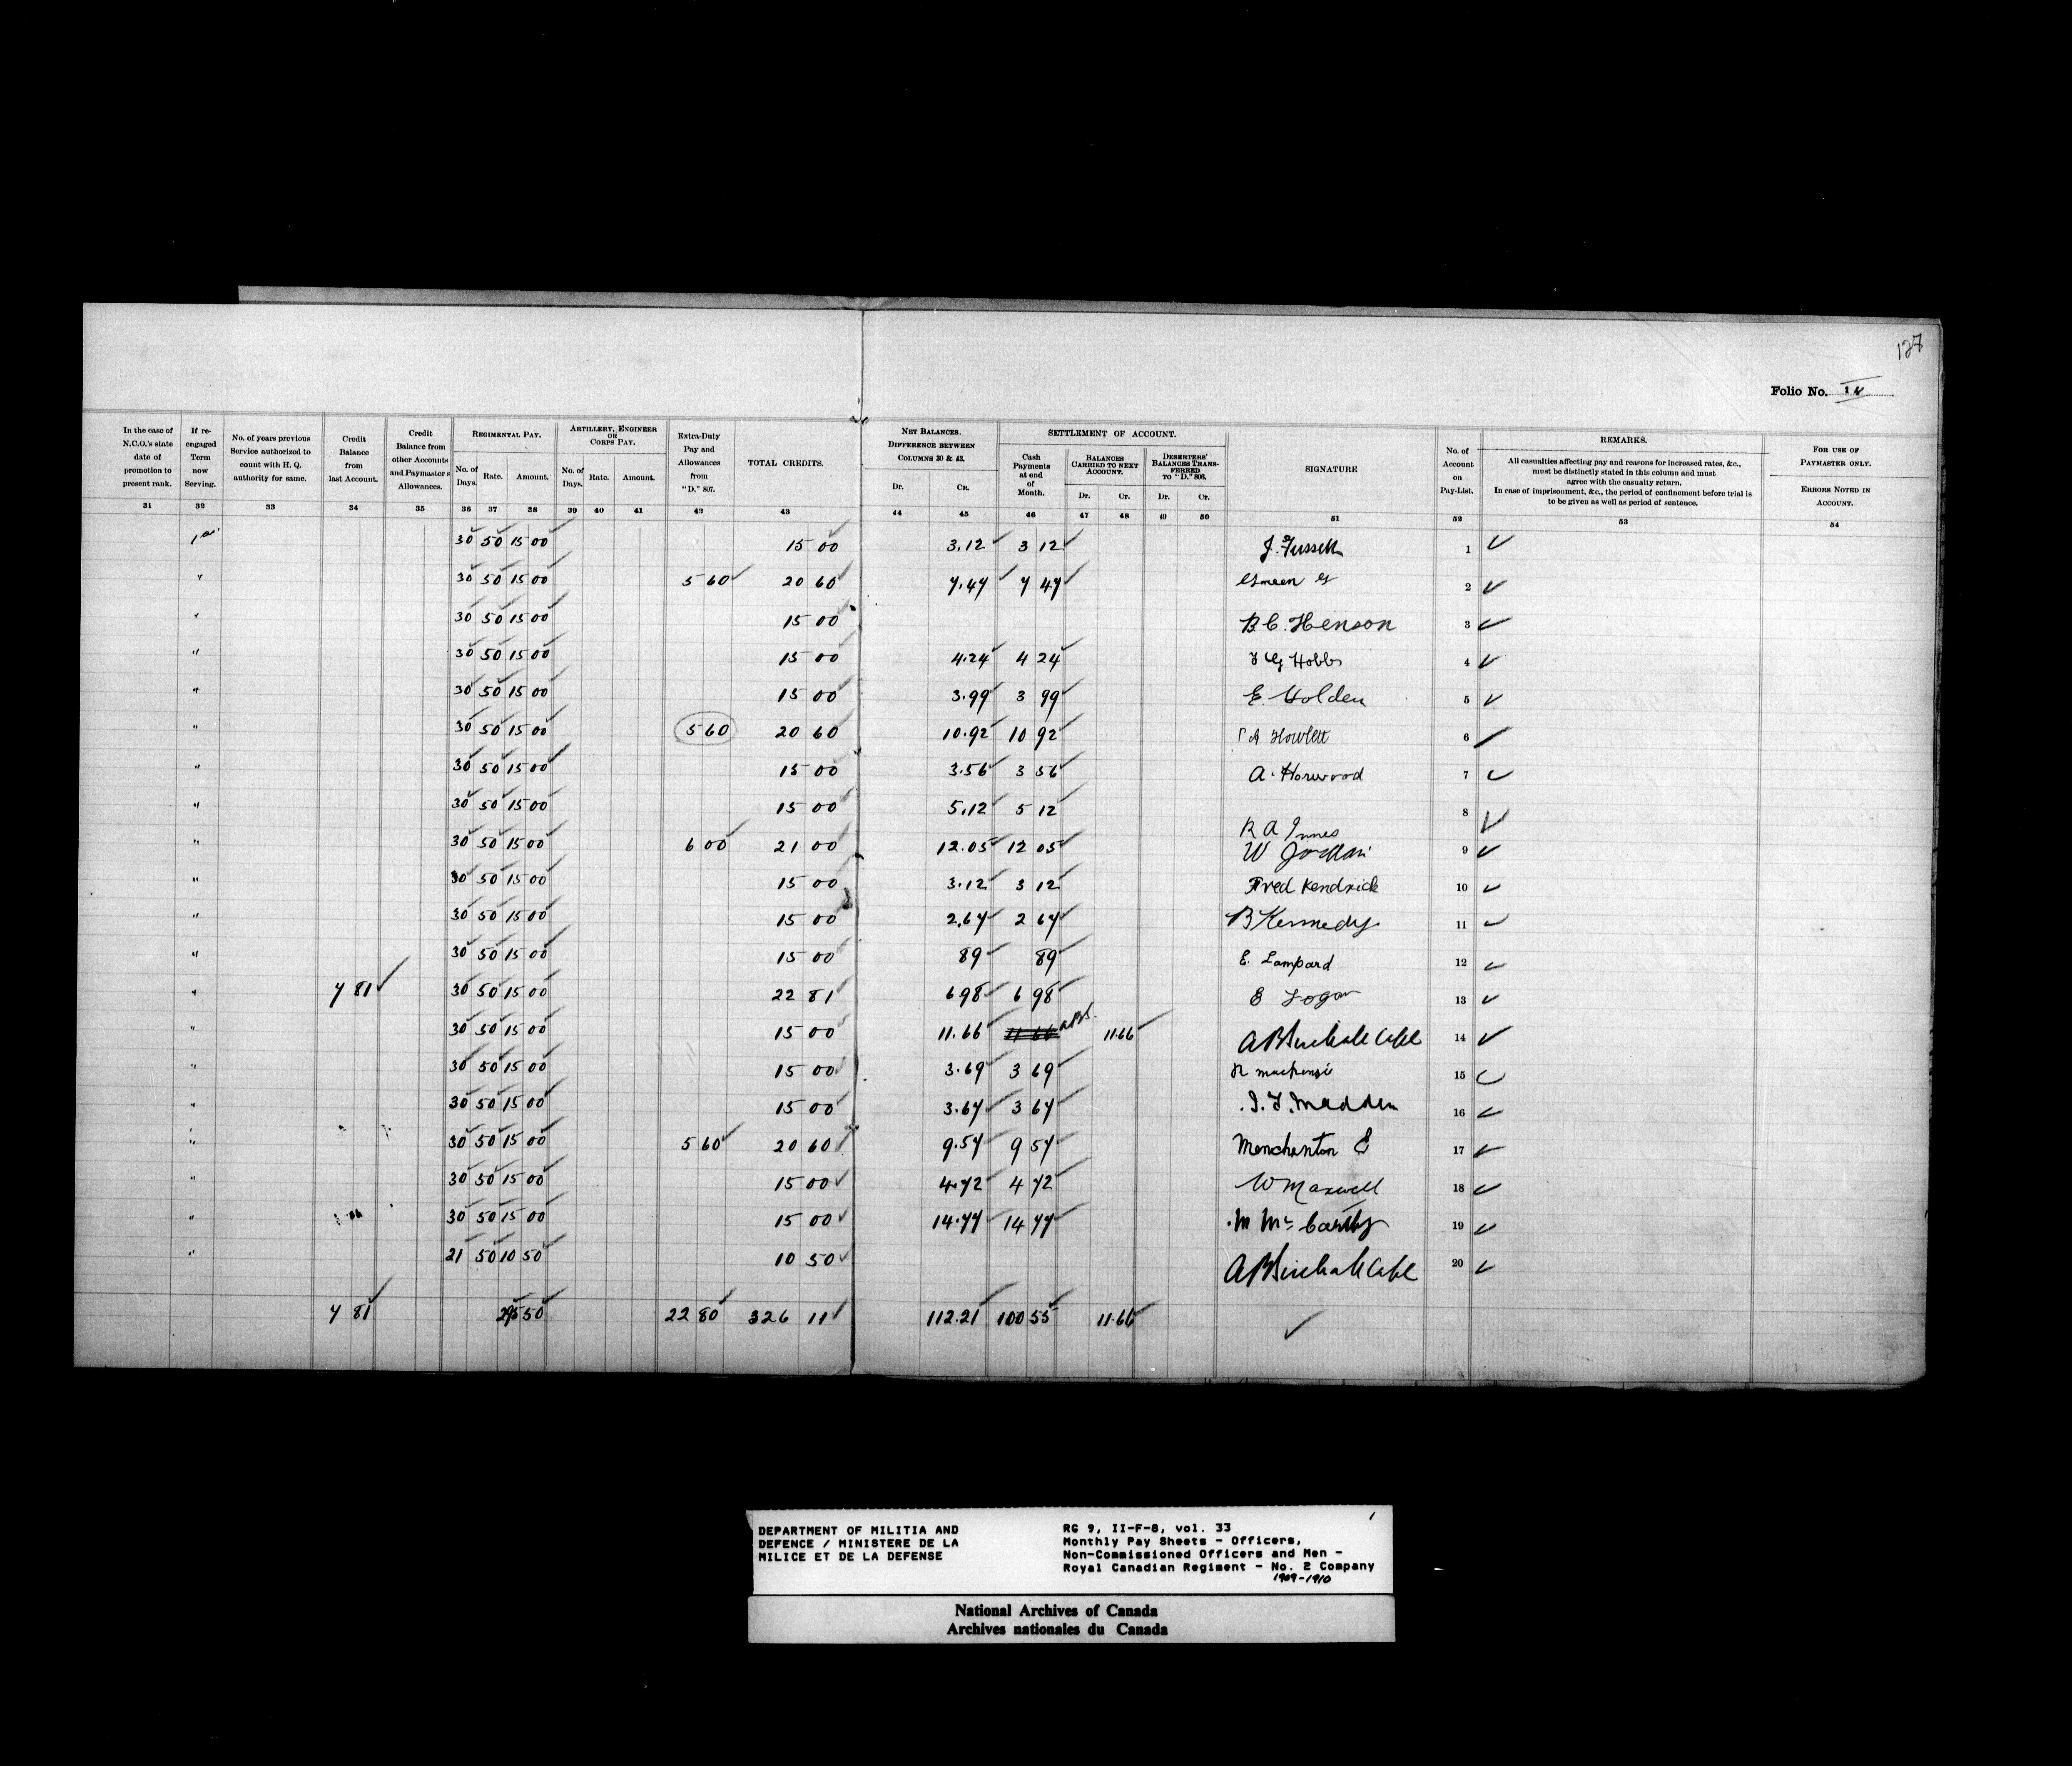 127
Folio No. 14
In the case of N.C.O.'s state date of promotion to present rank.
If re-engaged Term now Serving.
No. of years previous Service authorized to count with H. Q. authority for same.
Credit Balance from last Account.
Credit Balance from other Accounts and Paymaster's Allowances.
REGIMENTAL PAY.
No. of Days. Rate. Amount.
ARTILLERY, ENGINEER OR CORPS PAY.
No. of Days. Rate. Amount.
Extra-Duty Pay and Allowances from "D." 807.
TOTAL CREDITS.
NET BALANCES. DIFFERENCE BETWEEN COLUMNS 30 & 43.
Dr. Cr.
SETTLEMENT OF ACCOUNT.
Cash Payments at end of Month.
BALANCES CARRIED TO NEXT ACCOUNT.
Dr. Cr.
DESERTERS' BALANCES TRANSFERRED TO "D." 806.
Dr. Cr.
SIGNATURE
No. of Account on Pay-List.
REMARKS.
All casualties affecting pay and reasons for increased rates, &c., must be distinctly stated in this column and must agree with the casualty return.
In case of imprisonment, &c., the period of confinement before trial is to be given as well as period of sentence.
FOR USE OF PAYMASTER ONLY.
ERRORS NOTED IN ACCOUNT.
31 32 33 34 35 36 37 38 39 40 41 42 43 44 45 46 47 48 49 50 51 52 53 54
30 50 15 00 15 00 3.12 3 12 1
" 30 50 15 00 5 60 20 60 7.47 7 47 Green G 2
" 30 50 15 00 15 00 B.C. Henson 3
" 30 50 15 00 15 00 4.24 4 24 Hobbs 4
" 30 50 15 00 15 00 3.99 3 99 E. Holden 5
" 30 50 15 00 5 60 20 60 10.92 10 92 Howlett 6
" 30 50 15 00 15 00 3.56 3 56 A. Horwood 7
" 30 50 15 00 15 00 5.12 5 12 R A Innes 8
" 30 50 15 00 6 00 21 00 12.05 12 05 W Jordan 9
" 30 50 15 00 15 00 3.12 3 12 Fred Kendrick 10
" 30 50 15 00 15 00 2.67 2 67 B Kennedy 11
" 30 50 15 00 15 00 89 89 E. Lampard 12
7 81 " 30 50 15 00 22 81 6 98 6 98 E Logan 13
" 30 50 15 00 15 00 11.66 11 66 11.66 14
" 30 50 15 00 15 00 3.69 3 69 15
" 30 50 15 00 15 00 3.67 3 67 Madden 16
" 30 50 15 00 5 60 20 60 9.57 9 57 Menchanton E 17
" 30 50 15 00 15 00 4.72 4 72 W Maxwell 18
" 30 50 15 00 15 00 14.77 14 77 M McCarthy 19
" 21 50 10 50 10 50 20
7 81 295 50 22 80 326 11 112.21 100 55 11.66
DEPARTMENT OF MILITIA AND
DEFENCE / MINISTERE DE LA
MILICE ET DE LA DEFENSE
RG 9, II-F-8, vol. 33
Monthly Pay Sheets - Officers,
Non-Commissioned Officers and Men -
Royal Canadian Regiment - No. 2 Company
1909-1910
National Archives of Canada
Archives nationales du Canada